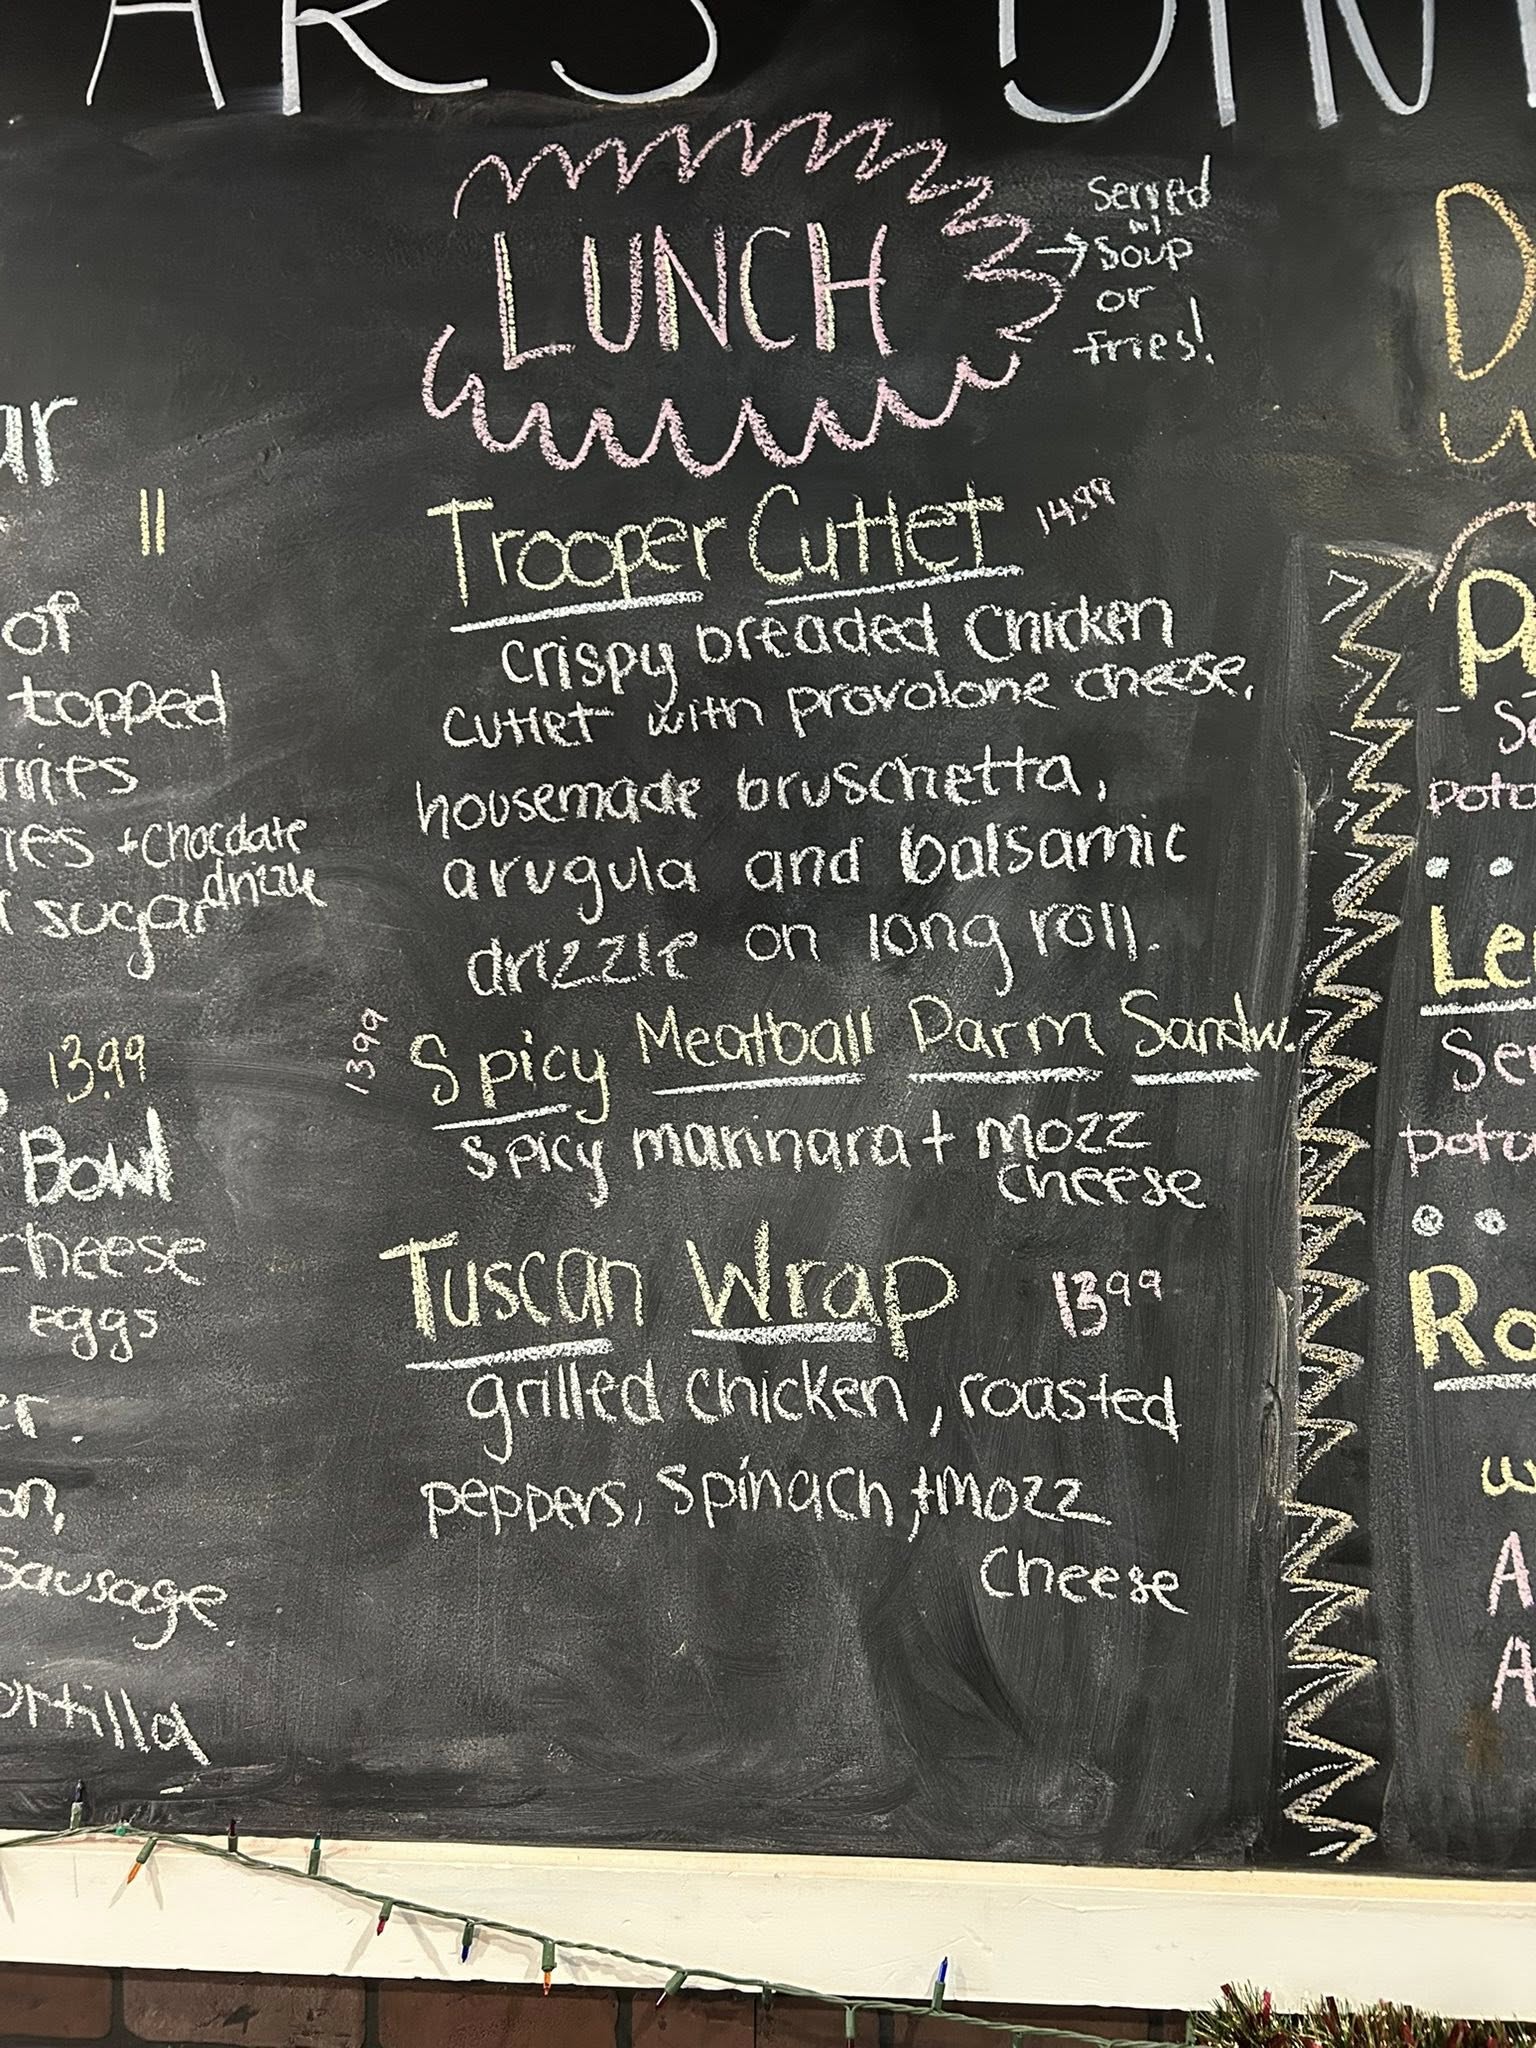 LUNCH
Served
w/
→ Soup
or
fries!
Trooper Cutlet 14.99
crispy breaded Chicken
cutlet with provolone cheese,
housemade bruschetta,
arugula and balsamic
drizzle on long roll.
13.99 Spicy Meatball Parm Sandw.
spicy marinara + mozz
cheese
Tuscan Wrap 13.99
grilled chicken, roasted
peppers, spinach, + mozz
cheese
11
of
topped
+ chocolate
drizzle
sugar
13.99
Bowl
cheese
eggs
sausage.